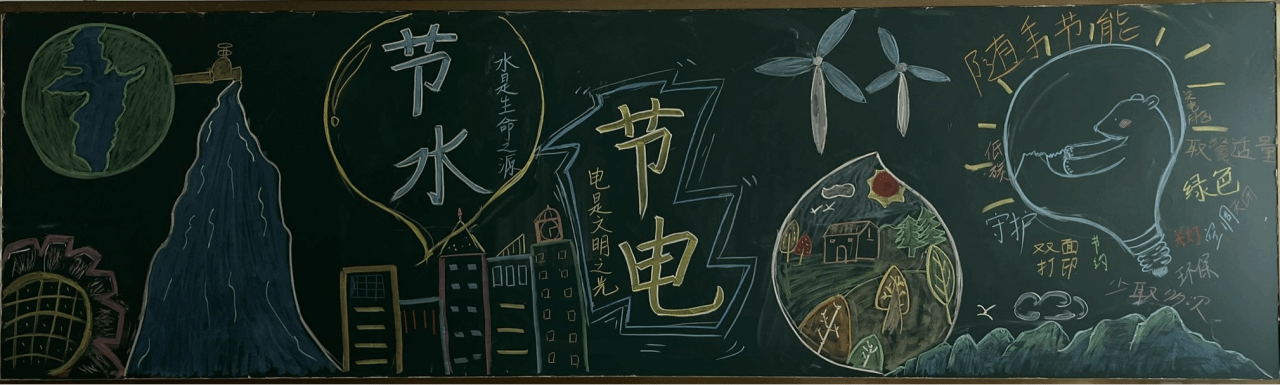 节水
水是生命之源
节电
电是文明之光
随手节能
低碳
取餐适量
绿色
守护
双面
打印
节约
关灯
环保
少取多次